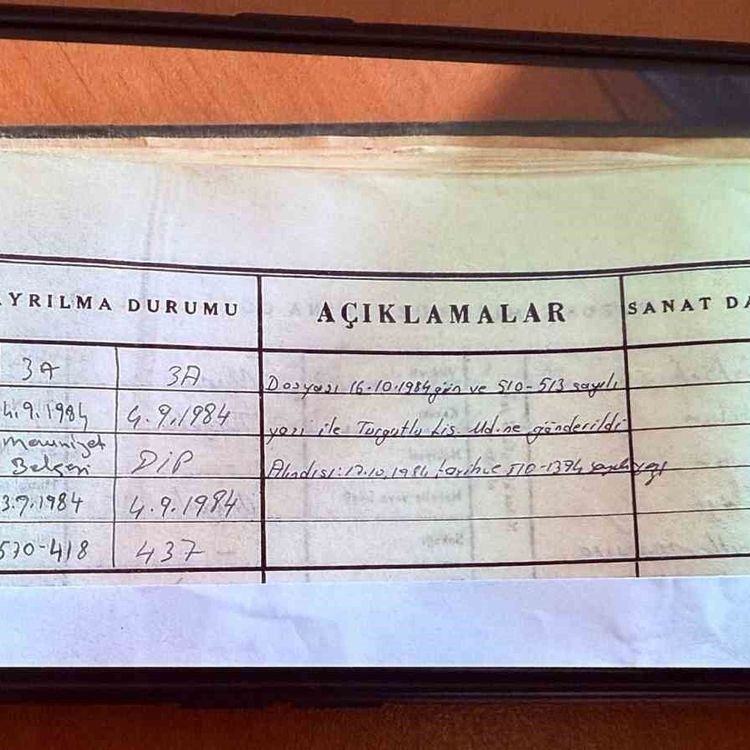 AYRILMA DURUMU AÇIKLAMALAR SANAT DA
3A 3A Dosyası 16-10-1984 gün ve 510-513 sayılı
4.9.1984 4.9.1984 yazı ile Turgutlu Lis. Md.ne gönderildi
Mezuniyet
Belgesi DİP Alındısı: 17.10.1984 tarih ve 510-1394 sayılı yazı
3.9.1984 4.9.1984
570-418 437